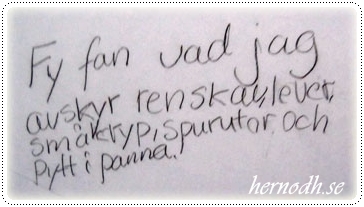 Fy fan vad jag
avskyr renskav, lever,
småkryp, spurutor och
Pytt i panna.
hernodh.se